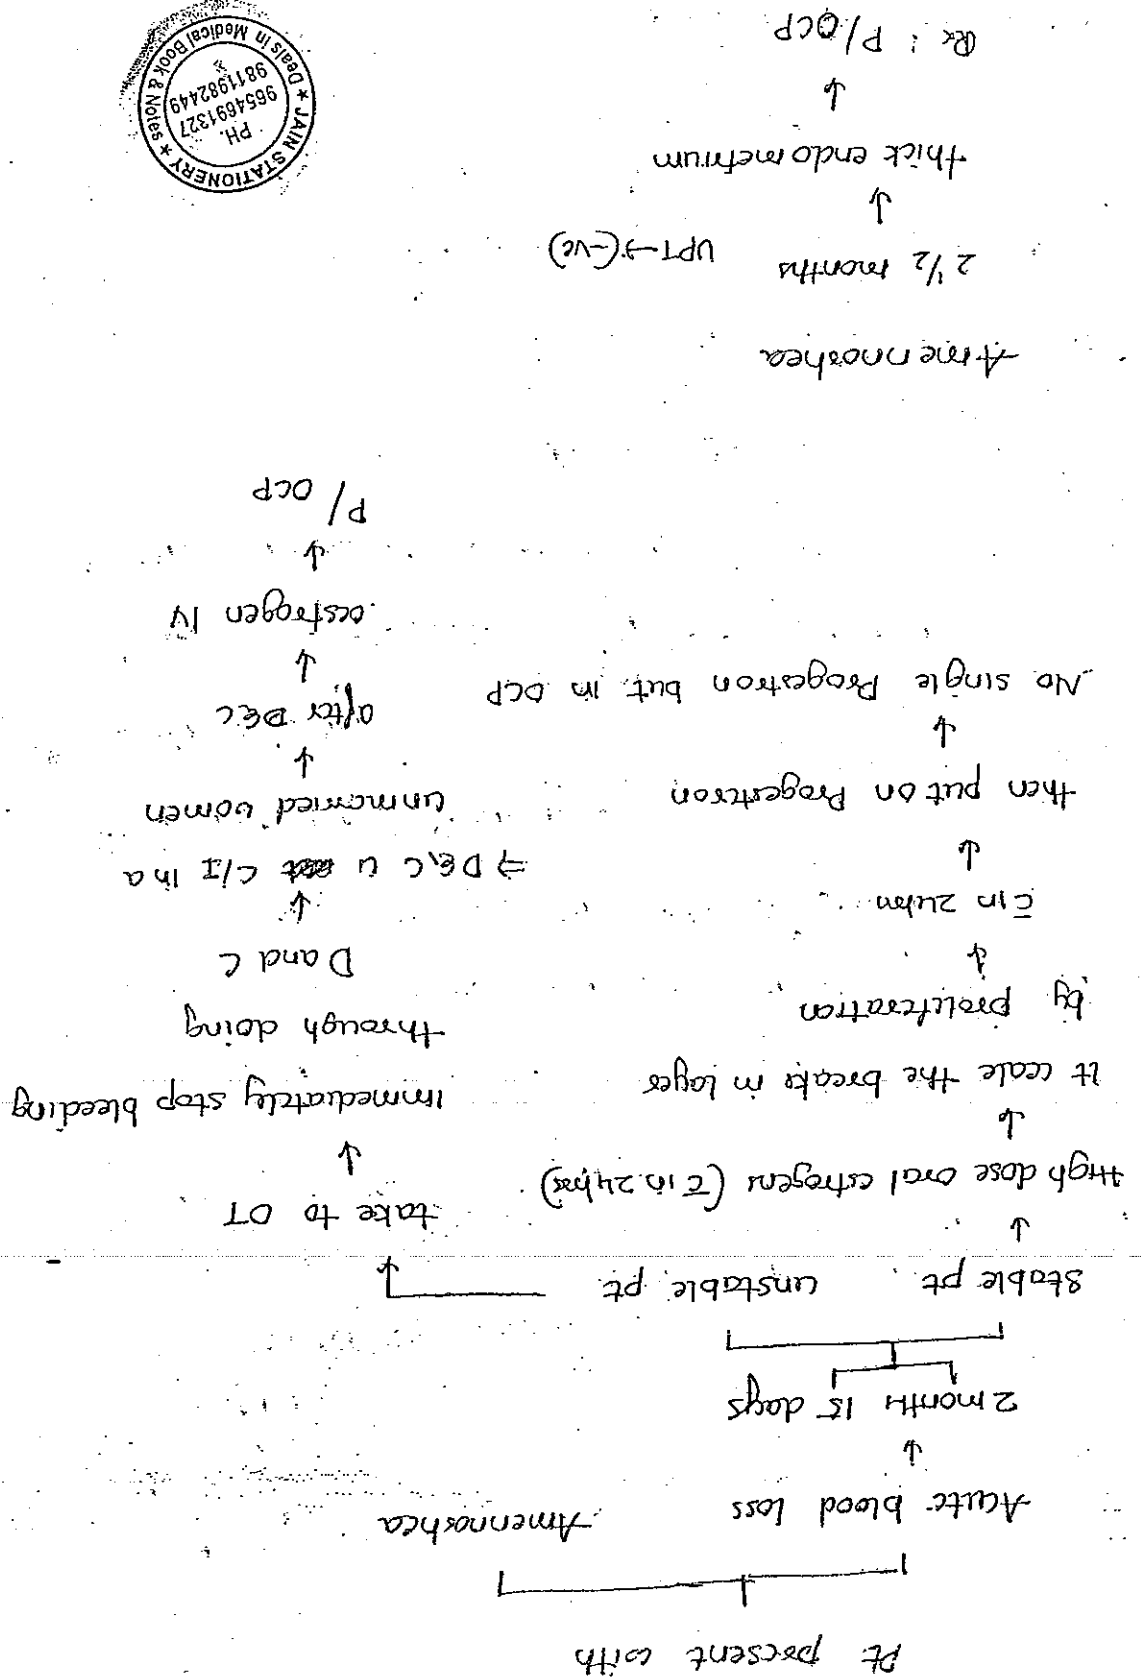 Pt present with
Acute blood loss
Amennoshea
2 month 15 days
Stable pt.
unstable pt.
High dose oral estrogens (c̄ in 24 hrs)
It seale the breaks in layer
by proliferation
c̄ in 24hrs
then put on Progestron
No single Progestron but in OCP
take to OT
Immediately stop bleeding
through doing
D and C
⇒ D&C is C/I in a
unmarried women
after D&C
oestrogen IV
P/ OCP
Amennoshea
2 1/2 months UPT→(-ve)
thick endometrium
Rx : P/OCP
★ JAIN STATIONERY ★
PH.
9654691327
9811982449
Deals in Medical Book & Notes